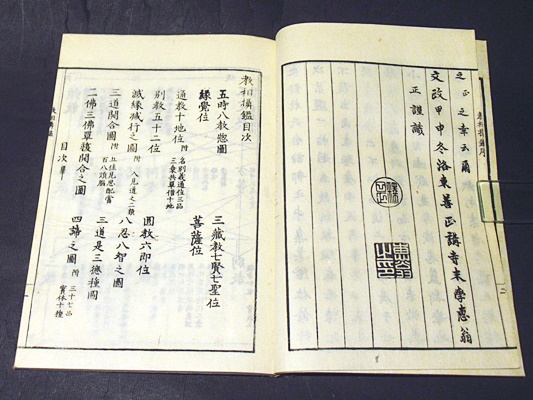 之正之幸云爾
文政甲申冬洛東善正講寺末學惠翁
正謹識
教相攟鑑目次
五時八教總圖
三藏教七賢七聖位
緣覺位
菩薩位
通教十地位 附 名別義通位三品 三乘共單借十地
別教五十二位
圓教六即位
滅緣減行之圖 附 入見道之二類
八忍八智之圖
三道開合圖 附 五住見思配當 百八煩惱
三道是三德種圖
二佛三佛單複開合之圖
四諦之圖 附 三十七品 實體十種
目次畢